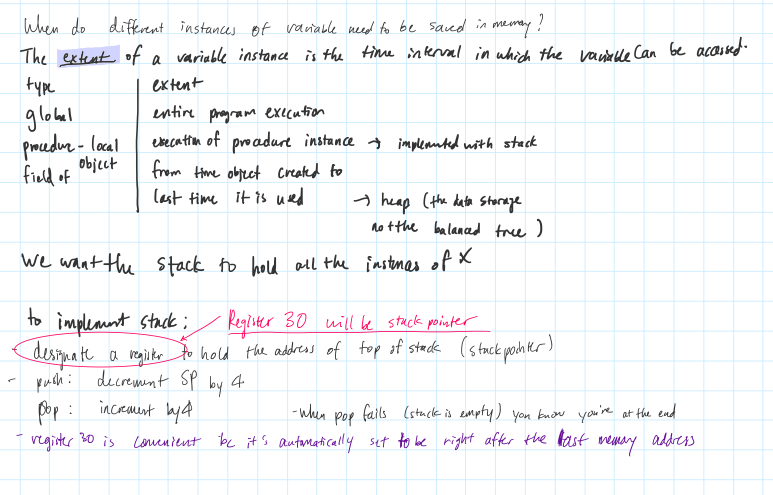 When do different instances of variable need to be saved in memory?
The extent of a variable instance is the time interval in which the variable can be accessed.
type extent
global entire program execution
procedure-local execution of procedure instance → implemented with stack
field of object from time object created to
last time it is used → heap (the data storage
not the balanced tree)
We want the stack to hold all the instances of X
to implement stack: Register 30 will be stack pointer
- designate a register to hold the address of top of stack (stackpointer)
- push: decrement SP by 4
pop: increment by 4 - when pop fails (stack is empty) you know you're at the end
- register 30 is convenient bc it's automatically set to be right after the last memory address